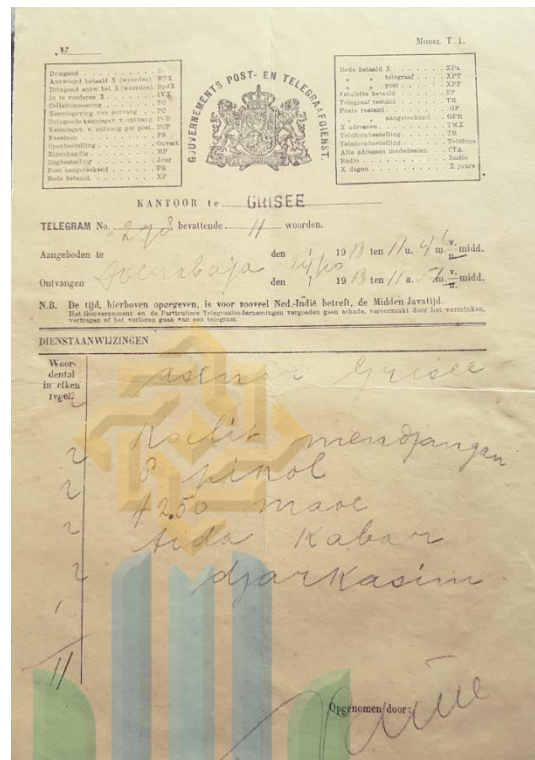 N°
MODEL T 1.
Dringend D
Antwoord betaald X (woorden) RPX
Dringend antw bet. X (woorden) RpdX
In te vorderen X IVX
Collationneering TC
Kennisgeving van ontvang PC
Dringende kennisgev. v. ontvang PCD
Kennisgev. v. ontvang per post PCP
Nazeinen FS
Openbestelling Ouvert
Eigenhandig MP
Dagbestelling Jour
Post aangeteekend PR
Bode betaald XP
Bode betaald X XPx
" " telegraaf XPT
" " post XPP
Estafette betaald EP
Telegraaf restant TR
Poste restant GP
" " aangeteekend GPR
X adressen TMX
Telefoonbestelling TB
Telefoonbestelling Téléfone
Alle adressen mededeelen CTA
Radio Radio
X dagen X jours
GOUVERNEMENTS POST- EN TELEGRAAFDIENST.
KANTOOR te GRISEE
TELEGRAM No. 298 bevattende 11 woorden.
Aangeboden te Soerabaja den 14/10 1913 ten 11 u. m. v./n. midd.
Ontvangen den 1913 ten 11 u. m. v./n. midd.
N.B. De tijd, hierboven opgegeven, is voor zooveel Ned.-Indië betreft, de Midden-Javatijd.
Het Gouvernement en de Particuliere Telegraafondernemingen vergoeden geen schade, veroorzaakt door het verminken,
vertragen of het verloren gaan van een telegram.
DIENSTAANWIJZINGEN
Woor-
dental
in elken
regel.
2 asenar Grisee
2 Koelit mendjangan
2 8 pikol
2 42.50 maoe
2 tida Kabar
1 djarkasim
11
Opgenomen door: